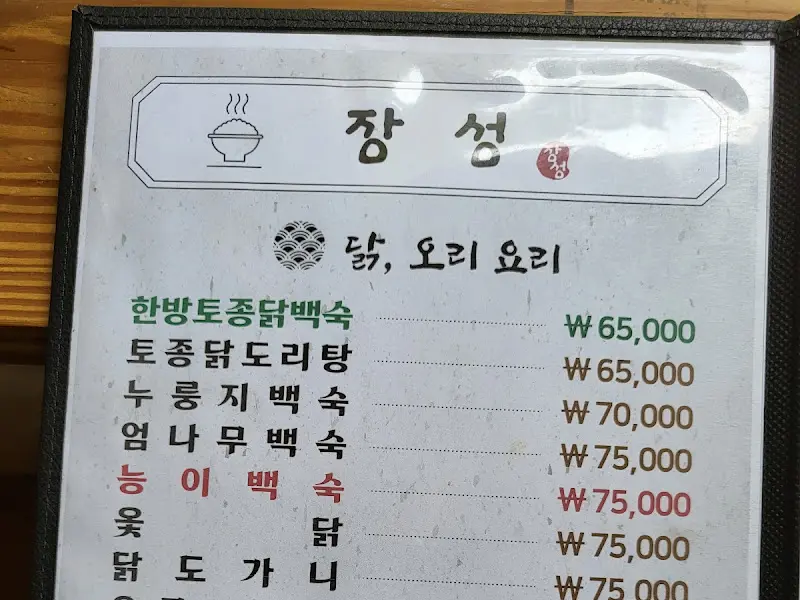 장 성 장성
닭, 오리 요리
한방토종닭백숙 ₩65,000
토종닭도리탕 ₩65,000
누룽지백숙 ₩70,000
엄나무백숙 ₩75,000
능이백숙 ₩75,000
옻닭 ₩75,000
닭도가니 ₩75,000